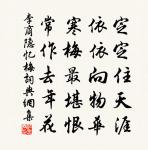 定定住天涯
依依向物華
寒梅最堪恨
常作去年花
李商隐憶梅詞典網集